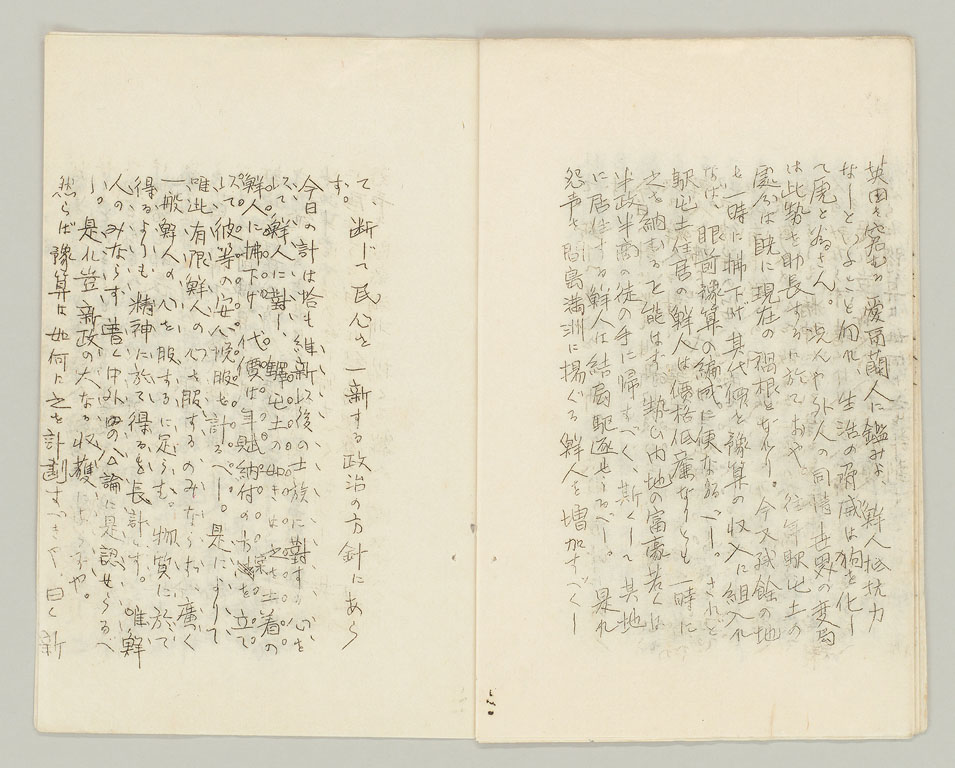 英国を窘むる愛蘭人に鑑みよ、鮮人抵抗力
なしといふこと勿れ、生活の脅威は狗を化し
て虎と為さん。況んや外人の同情、世界の変局
は此勢を助長するに於ておや。往年駅屯土の
処分は既に現在の禍根となれり。今又残余の地
を一時に払下げ其代価を予算の収入に組入れ
なば、眼前予算の編成に便なるべし。されど
駅屯土住居の鮮人は価格低廉なりとも一時に
之を納むること能はず、勢ひ内地の富豪若くは
半政半商の徒の手に帰すべく、斯くして其地
に居住する鮮人は結局駆逐せらるべし。是れ
怨声を間島満洲に揚ぐる鮮人を増加すべくし
て、断じて民心を一新する政治の方針にあら
ず。
今日の計は恰も維新以後の士族に対するの心を
以て鮮人に対し、駅屯土の如きは之を土着の
鮮人に払下げ、代価は年賦納付の方法を立て、
以て彼等の安心悦服を計るべし。是によりて
唯此有限鮮人の心を服するのみならず、広く
一般鮮人の心を服するに足らむ。物質に於て
得るよりも、精神に於て得るを長計とす。唯鮮
人のみならず、普く中外の公論に是認せらるべ
し。是れ豈新政の大なる収穫にあらずや。
然らば予算は如何に之を計劃すべきや、曰く新